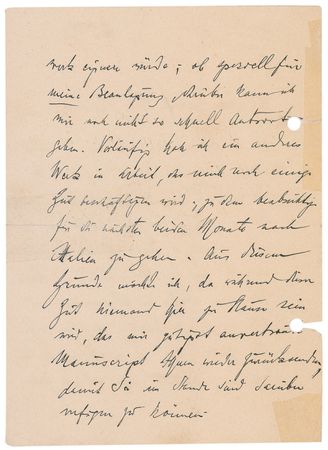 werk eignen würde; ob speziell für
meine Beanlagung, darüber kann ich
mir noch nicht so schnell Antwort
geben. Vorläufig hab ich ein anderes
Werk in Arbeit, das mich noch einige
Zeit beschäftigen wird, zudem beabsichtige
für die nächsten beiden Monate nach
Italien zu gehen. Aus diesem
Grunde möchte ich, da während dieser
Zeit niemand hier zu Hause sein
wird, das mir gütigst anvertraute
Manuscript Ihnen wieder zurücksenden,
damit Sie in Stande sind darüber
verfügen zu können.